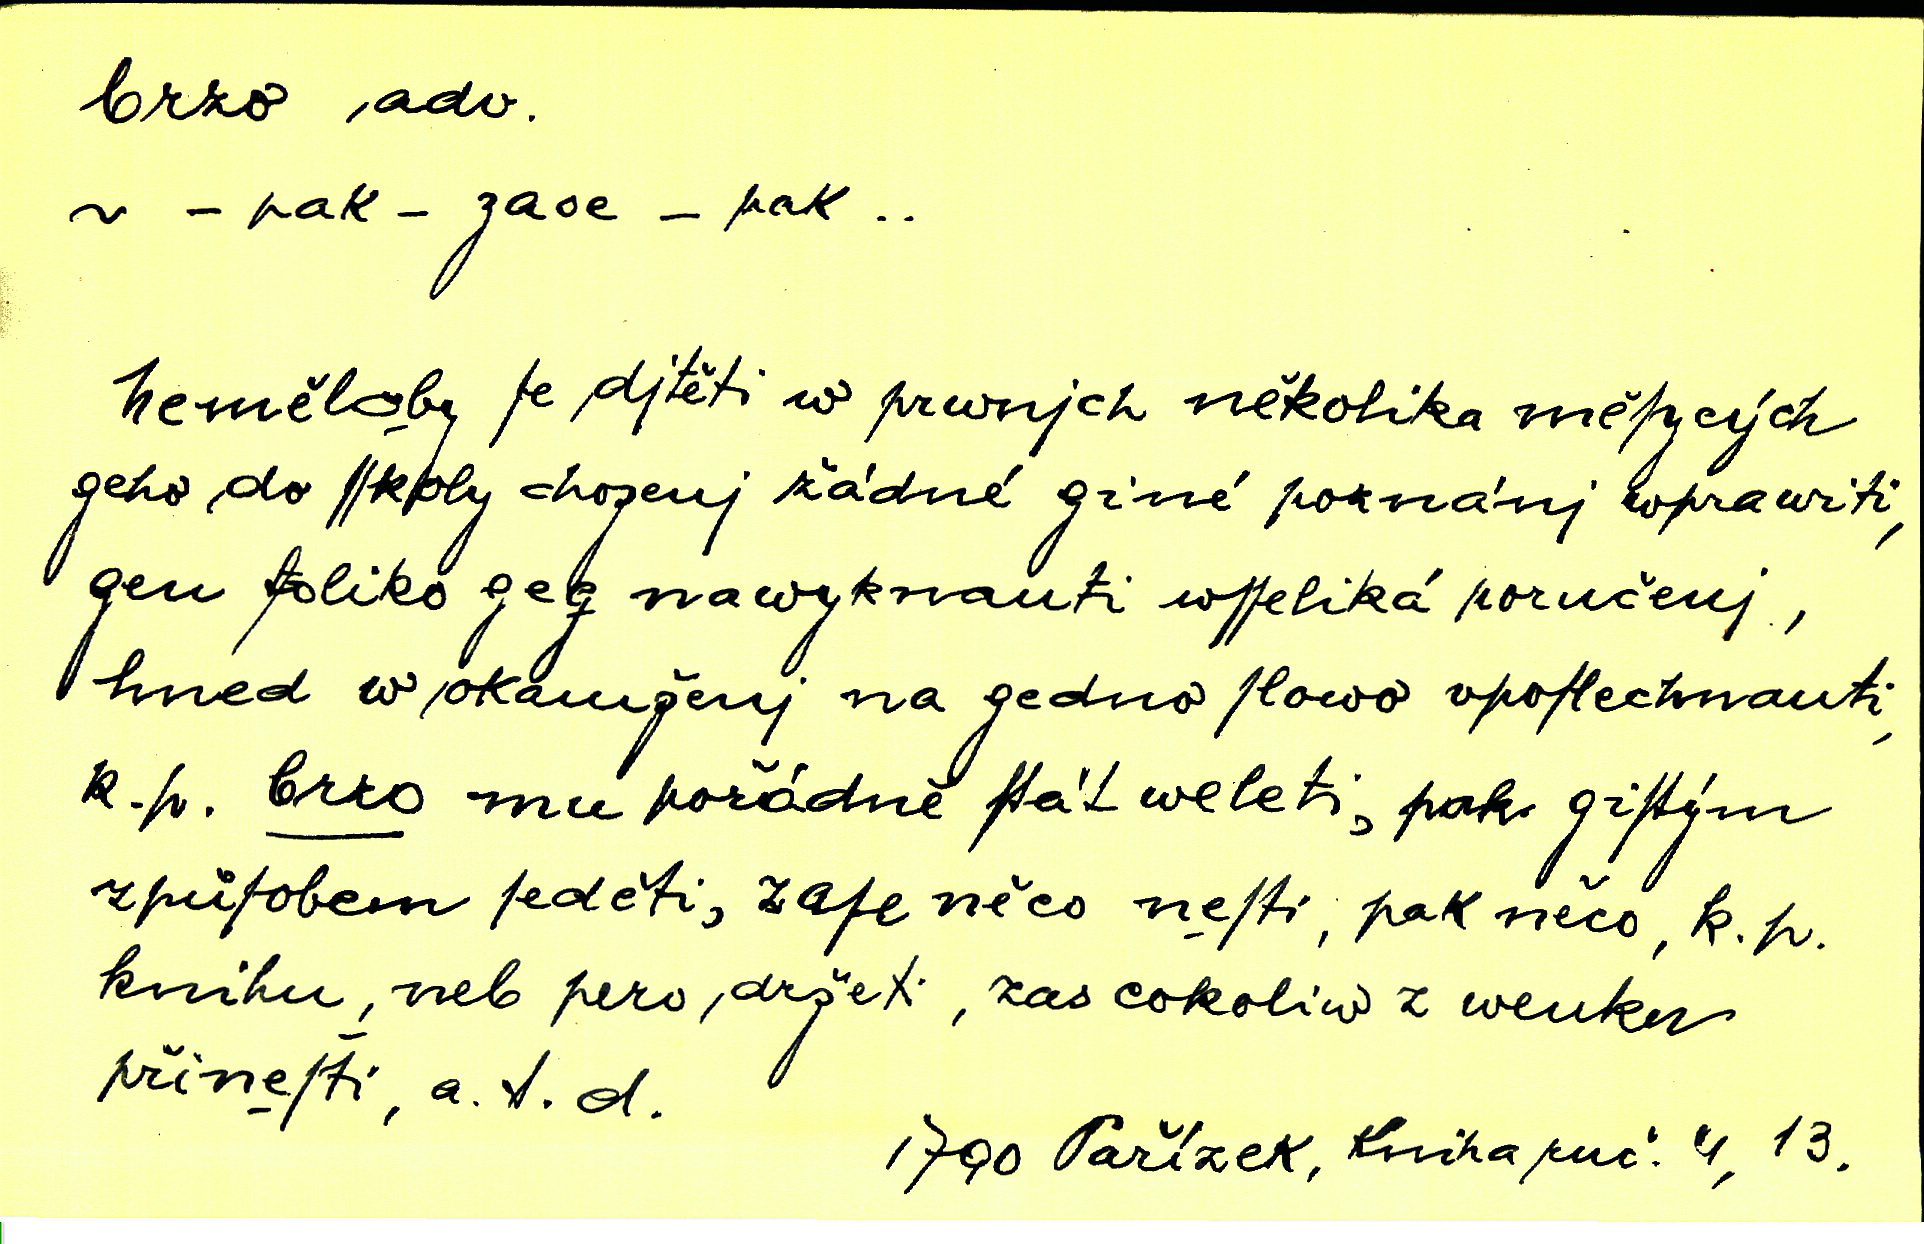 brzo adv.
~ – pak – zase – pak ..
Neměloby ſe djtěti w prwnjch několika měſycých
geho do ſſkoly chozenj žádné giné poznánj wprawiti,
gen toliko geg nawyknauti wſſeliká poručenj,
hned w okamženj na gedno ſlowo vpoſlechnauti,
k. p. brzo mu pořádně ſtát weleti, pak giſtým
způſobem ſeděti, zaſe něco neſti, pak něco, k. p.
knihu, neb pero držeti, zas cokoliw z wenku
přineſti, a. t. d.
1790 Pařízek, Kniha ruč. 4, 13.